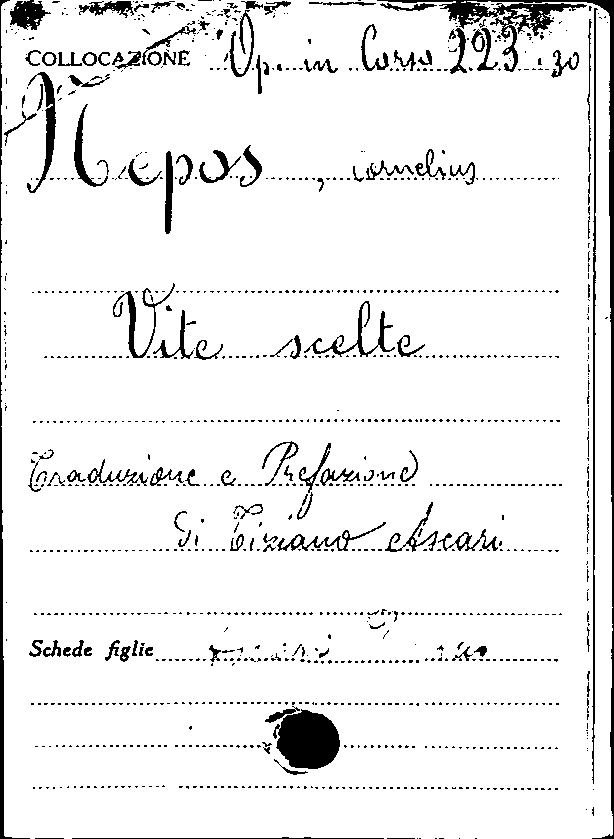 COLLOCAZIONE Op. in Corso 223.30
Nepos, Cornelius
Vite scelte
Traduzione e Prefazione
di Tiziano Ascari
Schede figlie